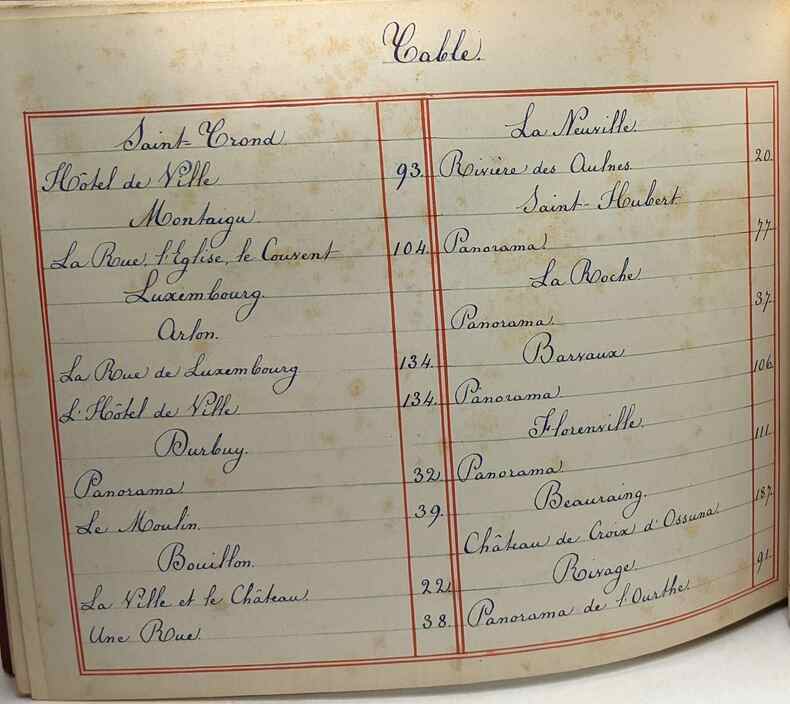 Table.
Saint-Trond.
Hôtel de Ville 93.
Montaigu.
La Rue, l'Eglise, le Couvent 104.
Luxembourg.
Arlon.
La Rue de Luxembourg 134.
L'Hôtel de Ville 134.
Durbuy.
Panorama 32.
Le Moulin. 39.
Bouillon.
La Ville et le Château 22.
Une Rue. 38.
La Neuville.
Rivière des Aulnes. 20.
Saint-Hubert
Panorama 77.
La Roche
Panorama. 37.
Barvaux
Panorama. 106.
Florenville.
Panorama 111.
Beauraing.
Château de Croix d'Ossuna. 187.
Rivage
Panorama de l'Ourthe. 91.